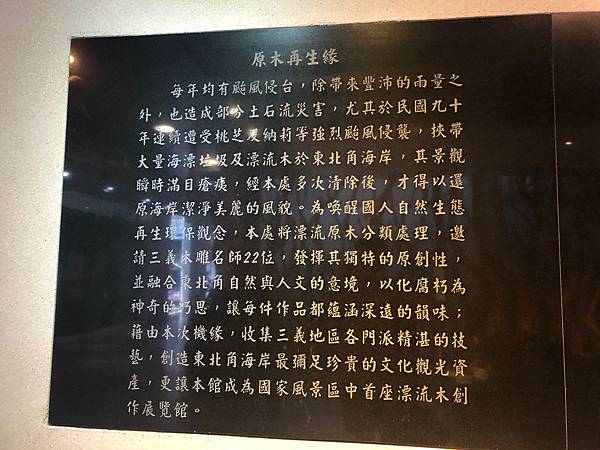 原木再生緣
每年均有颱風侵台，除帶來豐沛的雨量之
外，也造成部分土石流災害，尤其於民國九十
年連續遭受桃芝及納莉等強烈颱風侵襲，挾帶
大量海漂垃圾及漂流木於東北角海岸，其景觀
瞬時滿目瘡痍，經本處多次清除後，才得以還
原海岸潔淨美麗的風貌。為喚醒國人自然生態
再生環保觀念，本處將漂流原木分類處理，邀
請三義木雕名師22位，發揮其獨特的原創性，
並融合東北角自然與人文的意境，以化腐朽為
神奇的巧思，讓每件作品都蘊涵深遠的韻味；
藉由本次機緣，收集三義地區各門派精湛的技
藝，創造東北角海岸最彌足珍貴的文化觀光資
產，更讓本館成為國家風景區中首座漂流木創
作展覽館。